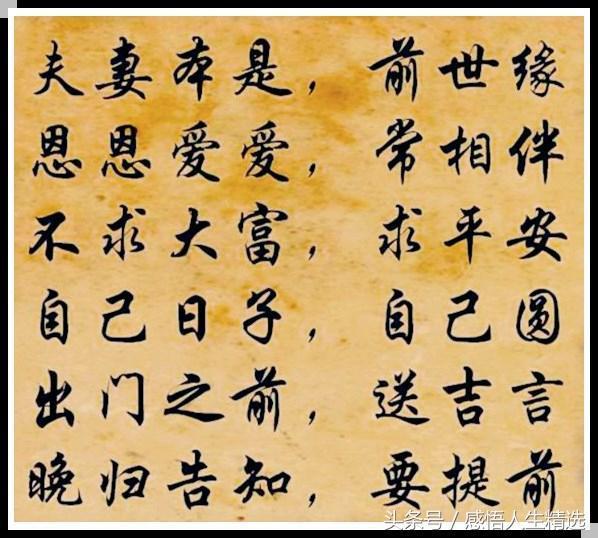 夫妻本是，前世缘
恩恩爱爱，常相伴
不求大富，求平安
自己日子，自己圆
出门之前，送吉言
晚归告知，要提前
头条号／感悟人生精选